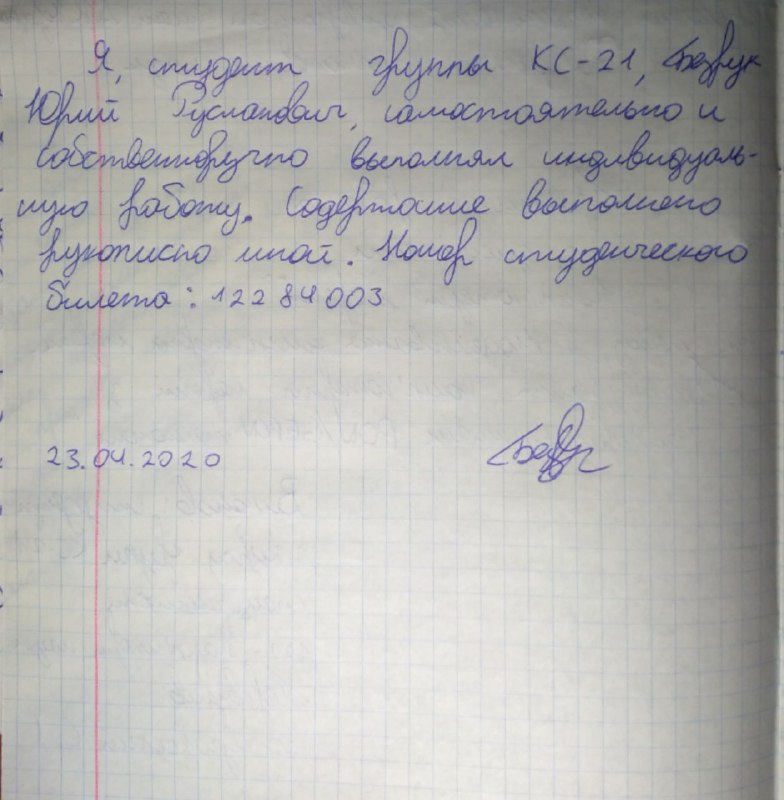 Я, студент группы КС-21, Безрук
Юрий Русланович, самостоятельно и
собственноручно выполнял индивидуаль-
ную работу. Содержание выполнено
рукописно мной. Номер студенческого
билета: 12284003
23.04.2020